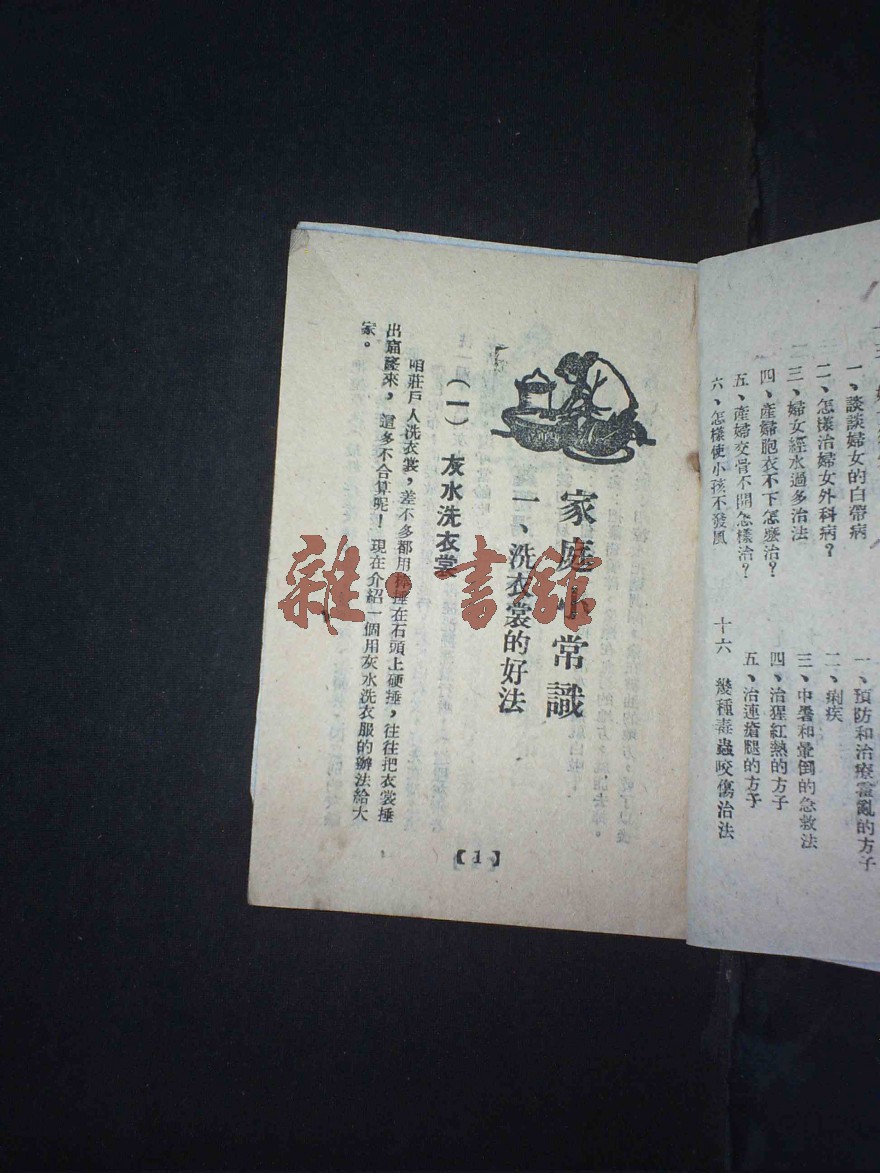 一、談談婦女的白帶病
二、怎樣治婦女外科病?
三、婦女經水過多治法
四、產婦胞衣不下怎麽治?
五、產婦交骨不開怎樣治?
六、怎樣使小孩不發風
一、預防和治療霍亂的方子
二、痢疾
三、中暑和暈倒的急救法
四、治猩紅熱的方子
五、治連瘡腿的方子
十六 幾種毒蟲咬傷治法
家庭小常識
一、洗衣裳的好法
(一) 灰水洗衣裳
咱莊戶人洗衣裳,差不多都用棒捶在石頭上硬捶,往往把衣裳捶
出窟窿來,這多不合算呢!現在介紹一個用灰水洗衣服的辦法給大
家。
【1】
雜·書館